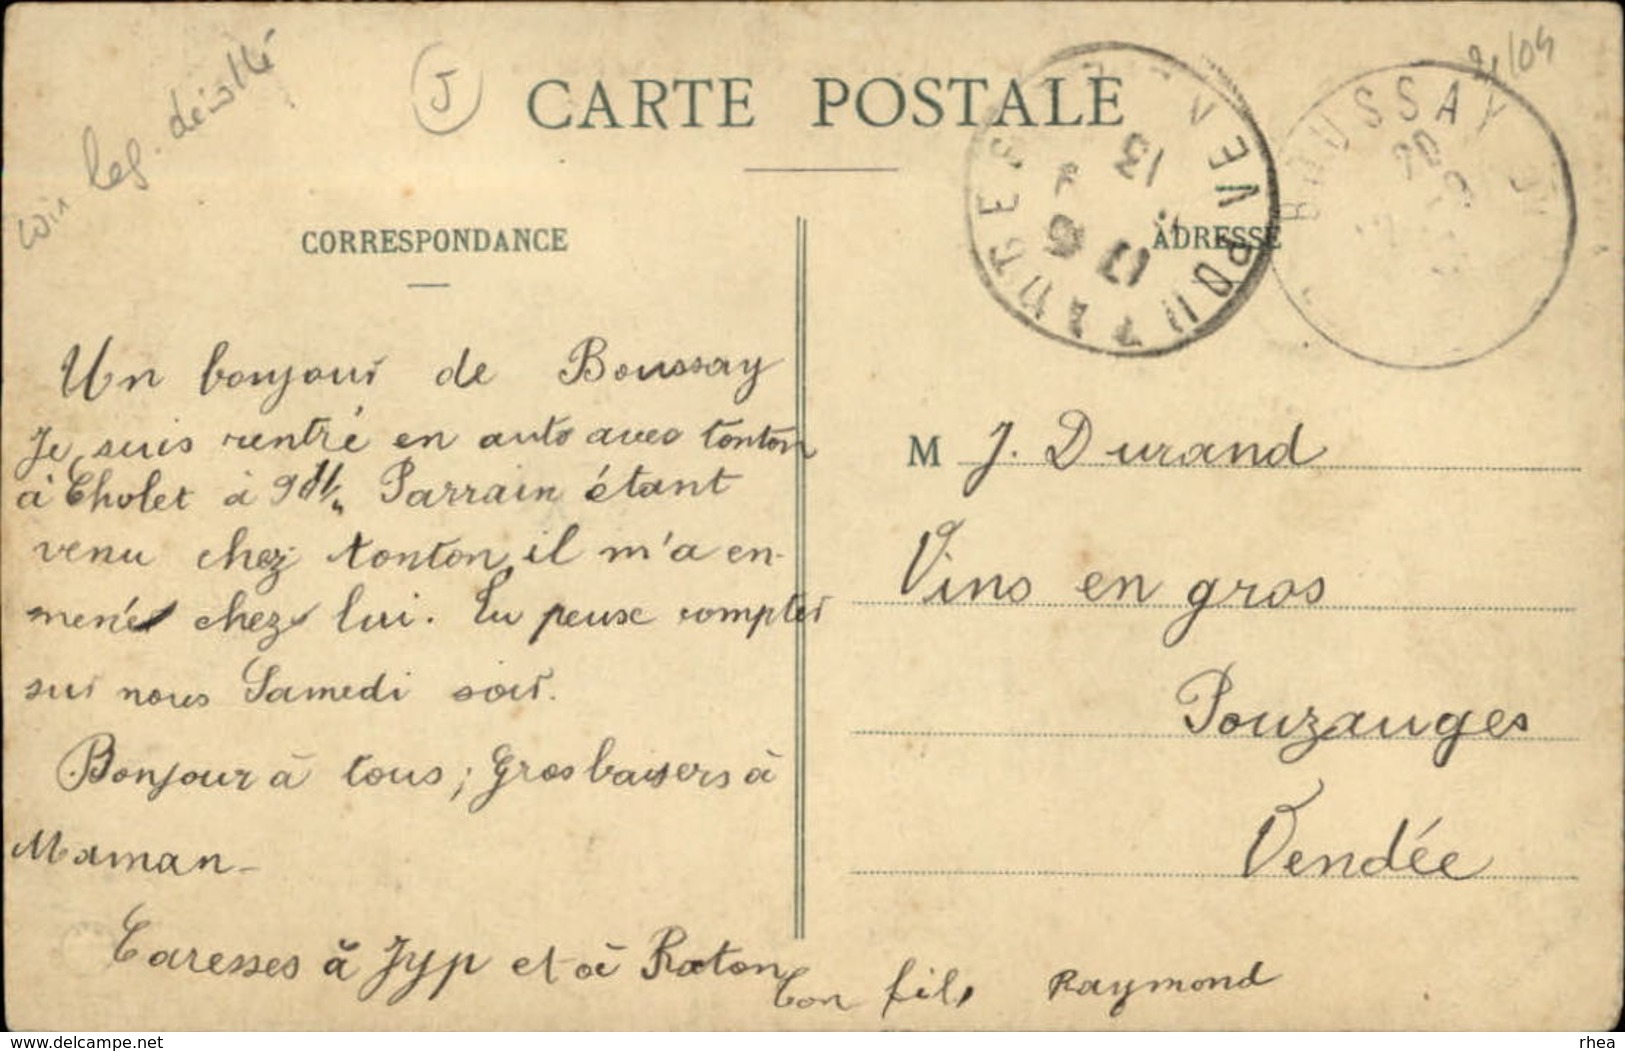 J
CARTE POSTALE
CORRESPONDANCE
Un bonjour de Boussay
Je suis rentré en auto avec tonton
à Cholet à Parrain étant
venu chez tonton, il m'a en-
mené chez lui. Tu peux compter
sur nous Samedi soir.
Bonjour à tous; Gros baisers à
Maman -
Caresses à Jyp et à Raton
Ton fils, Raymond
ADRESSE
M J. Durand
Vins en gros
Pouzauges
Vendée
POUZAUGES VEN
13
17 5
BOUSSAY
www.delcampe.net
rhea